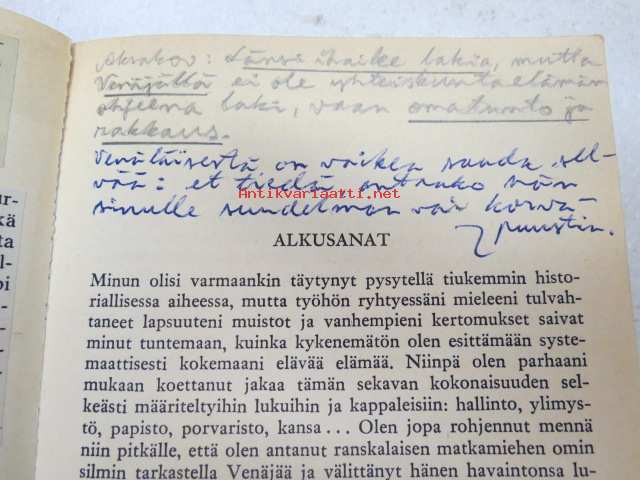 Aksakov: Länsi ihailee lakia, mutta
Venäjällä ei ole yhteiskuntaelämän
ohjeena laki, vaan omatunto ja
rakkaus.
Venäläisestä on vaikea saada sel-
vää: et tiedä antaako hän
Antikvariaatti.net
sinulle suudelman vai korva-
puustin.
ALKUSANAT
Minun olisi varmaankin täytynyt pysytellä tiukemmin histo-
riallisessa aiheessa, mutta työhön ryhtyessäni mieleeni tulvah-
taneet lapsuuteni muistot ja vanhempieni kertomukset saivat
minut tuntemaan, kuinka kykenemätön olen esittämään syste-
maattisesti kokemaani elävää elämää. Niinpä olen parhaani
mukaan koettanut jakaa tämän sekavan kokonaisuuden sel-
keästi määriteltyihin lukuihin ja kappaleisiin: hallinto, ylimys-
tö, papisto, porvaristo, kansa... Olen jopa rohjennut mennä
niin pitkälle, että olen antanut ranskalaisen matkamiehen omin
silmin tarkastella Venäjää ja välittänyt hänen havaintonsa lu-